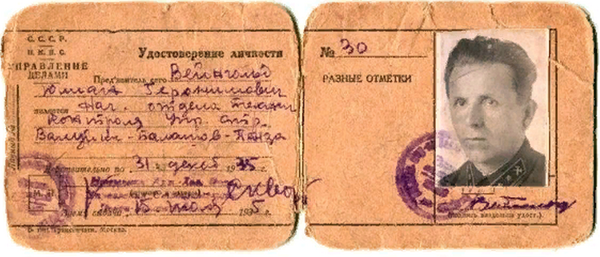 С.С.С.Р.
Н.К.П.С.
УПРАВЛЕНИЕ
ДЕЛАМИ
Удостоверение личности
Предъявитель сего Вейнгольд
Юлиан Геронимович
является Нач. отдела техни
контроля Упр. стр.
Валуйки-Балашов-Пенза
Действительно по 31 декаб 1935
Время выдачи 15 1935
Москва.
№ 30
РАЗНЫЕ ОТМЕТКИ
Вейнгольд
(подпись владельца удост.)